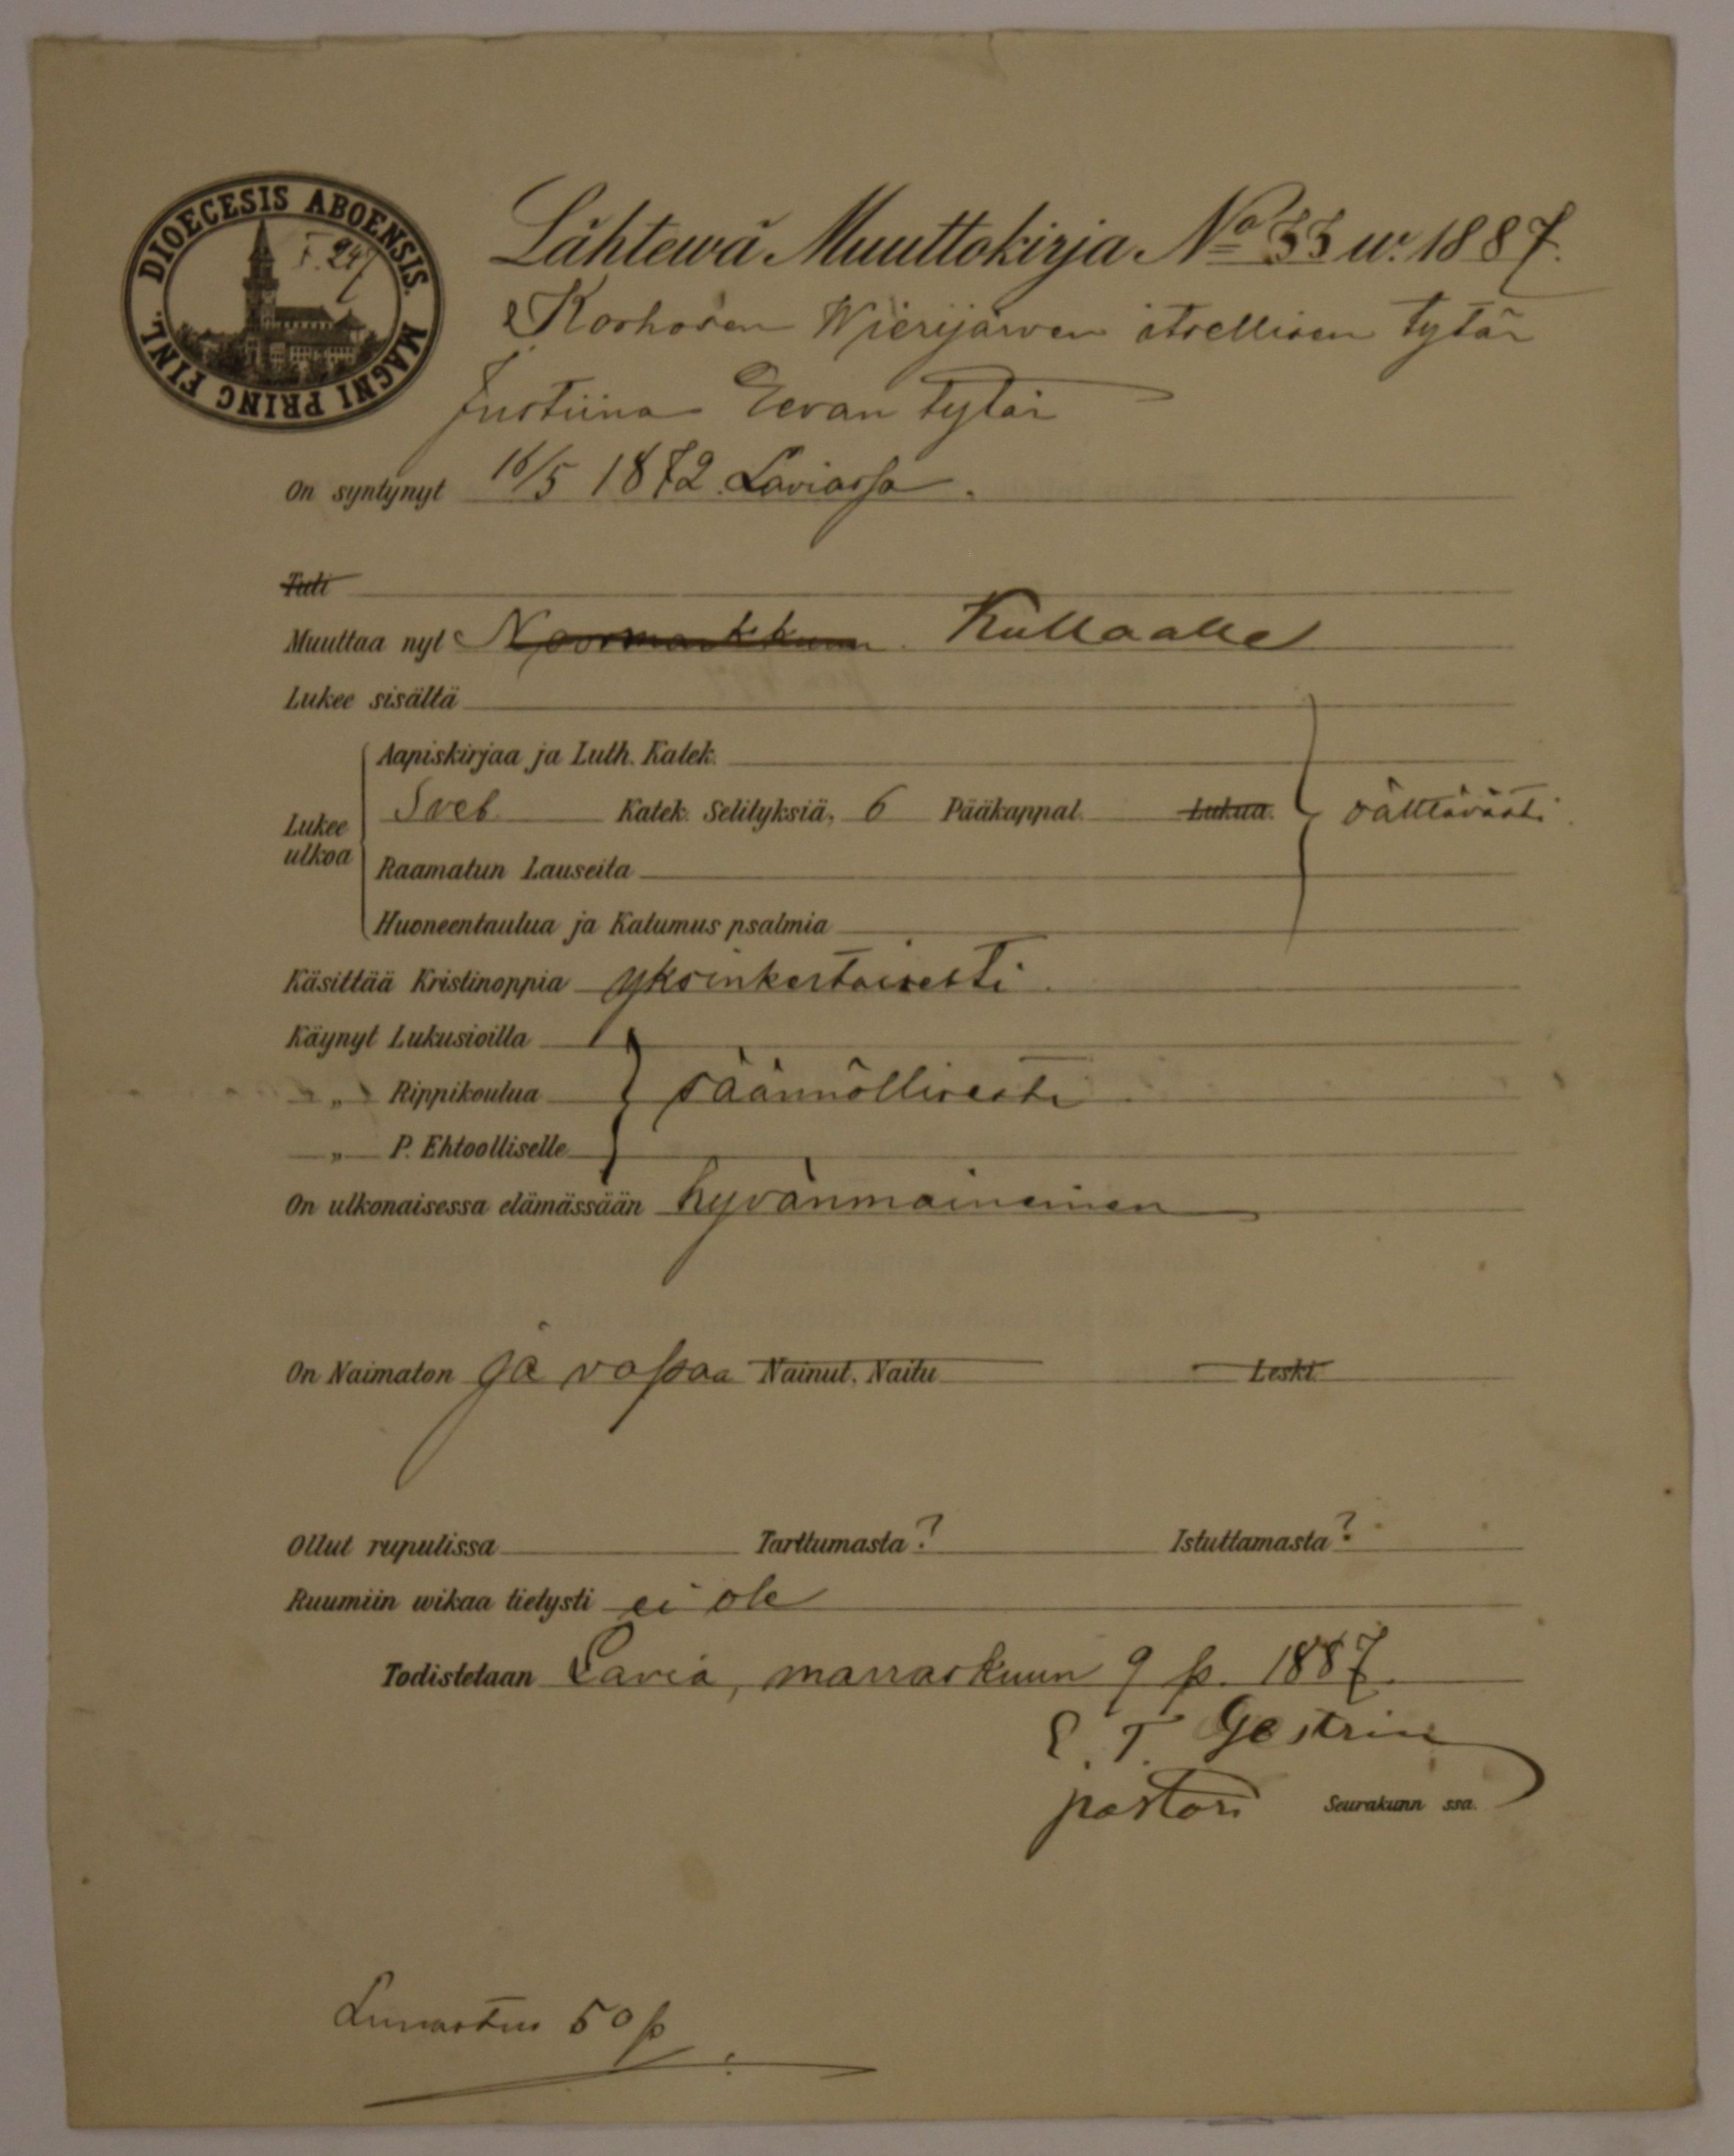 DIOECESIS ABOENSIS. MAGNI PRINC FINL.
Lähtewä Muuttokirja No 33 w. 1887.
Korhosen Wierijärven itsellisen tytär
Justiina Eevan tytär
On syntynyt 16/5 1872 Laviassa.
Tuli
Muuttaa nyt Noormarkkuun. Kullaalle
Lukee sisältä
Aapiskirjaa ja Luth. Katek.
Lukee ulkoa
Sveb. Katek. Selityksiä, 6 Pääkappal. Lukua. välttävästi.
Raamatun Lauseita
Huoneentaulua ja Katumus psalmia
Käsittää Kristinoppia yksinkertaisesti.
Käynyt Lukusioilla
„ Rippikoulua säännöllisesti.
„ P. Ehtoolliselle
On ulkonaisessa elämässään hyvänmaineinen
On Naimaton ja vapaa Nainut, Naitu Leski.
Ollut rupulissa Tarttumasta? Istuttamasta?
Ruumiin wikaa tietysti ei ole
Todistetaan Lavia, marraskuun 9 p. 1887.
E. T. Gestrin
pastori Seurakunn ssa.
Lunastus 50 p.